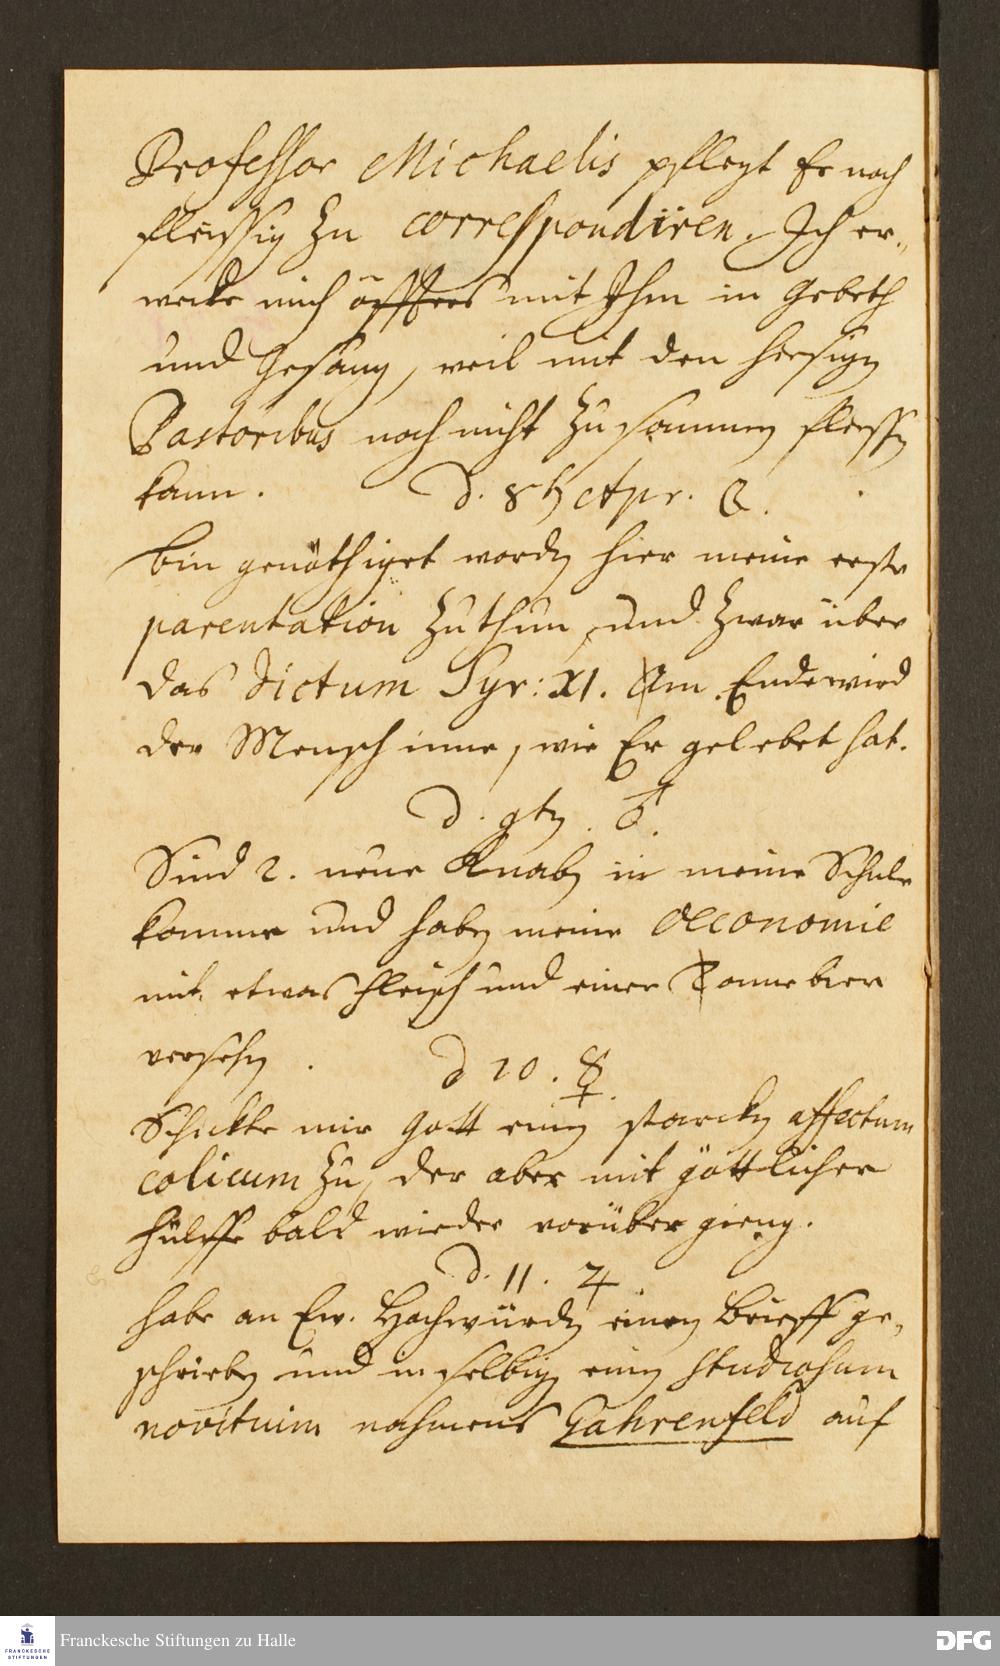 Professor Michaelis pflegt Er noch
fleissig zu correspondiren. Ich er-
wecke mich öffters mit Ihm in Gebeth
und Gesang, weil mit den hiesigen
Pastoribus noch nicht zusammen fliessen
kann. d. 8ten Apr. ☾.
bin genöthiget worden hier meine erste
parentation zuthun, und zwar über
das dictum Syr: XI. Am Ende wird
der Mensch inne, wie Er gelebet hat.
d. 9ten. ♂.
Sind 2. neue Knaben in meine Schule
komme und haben meine Oeconomie
mit etwas Fleisch und einer Tonne bier
versehen. d 10. ☿.
Schickte mir Gott einen starcken affectum
colicum zu, der aber mit göttlicher
hülffe bald wieder vorüber gieng.
d. 11. ♃
habe an Ew. Hochwürden einen Brieff ge-
schrieben und in selbigen einen studiosum
novitium nahmens Gahrenfeld auf
Franckesche Stiftungen zu Halle
FRANCKESCHE
STIFTUNGEN
DFG